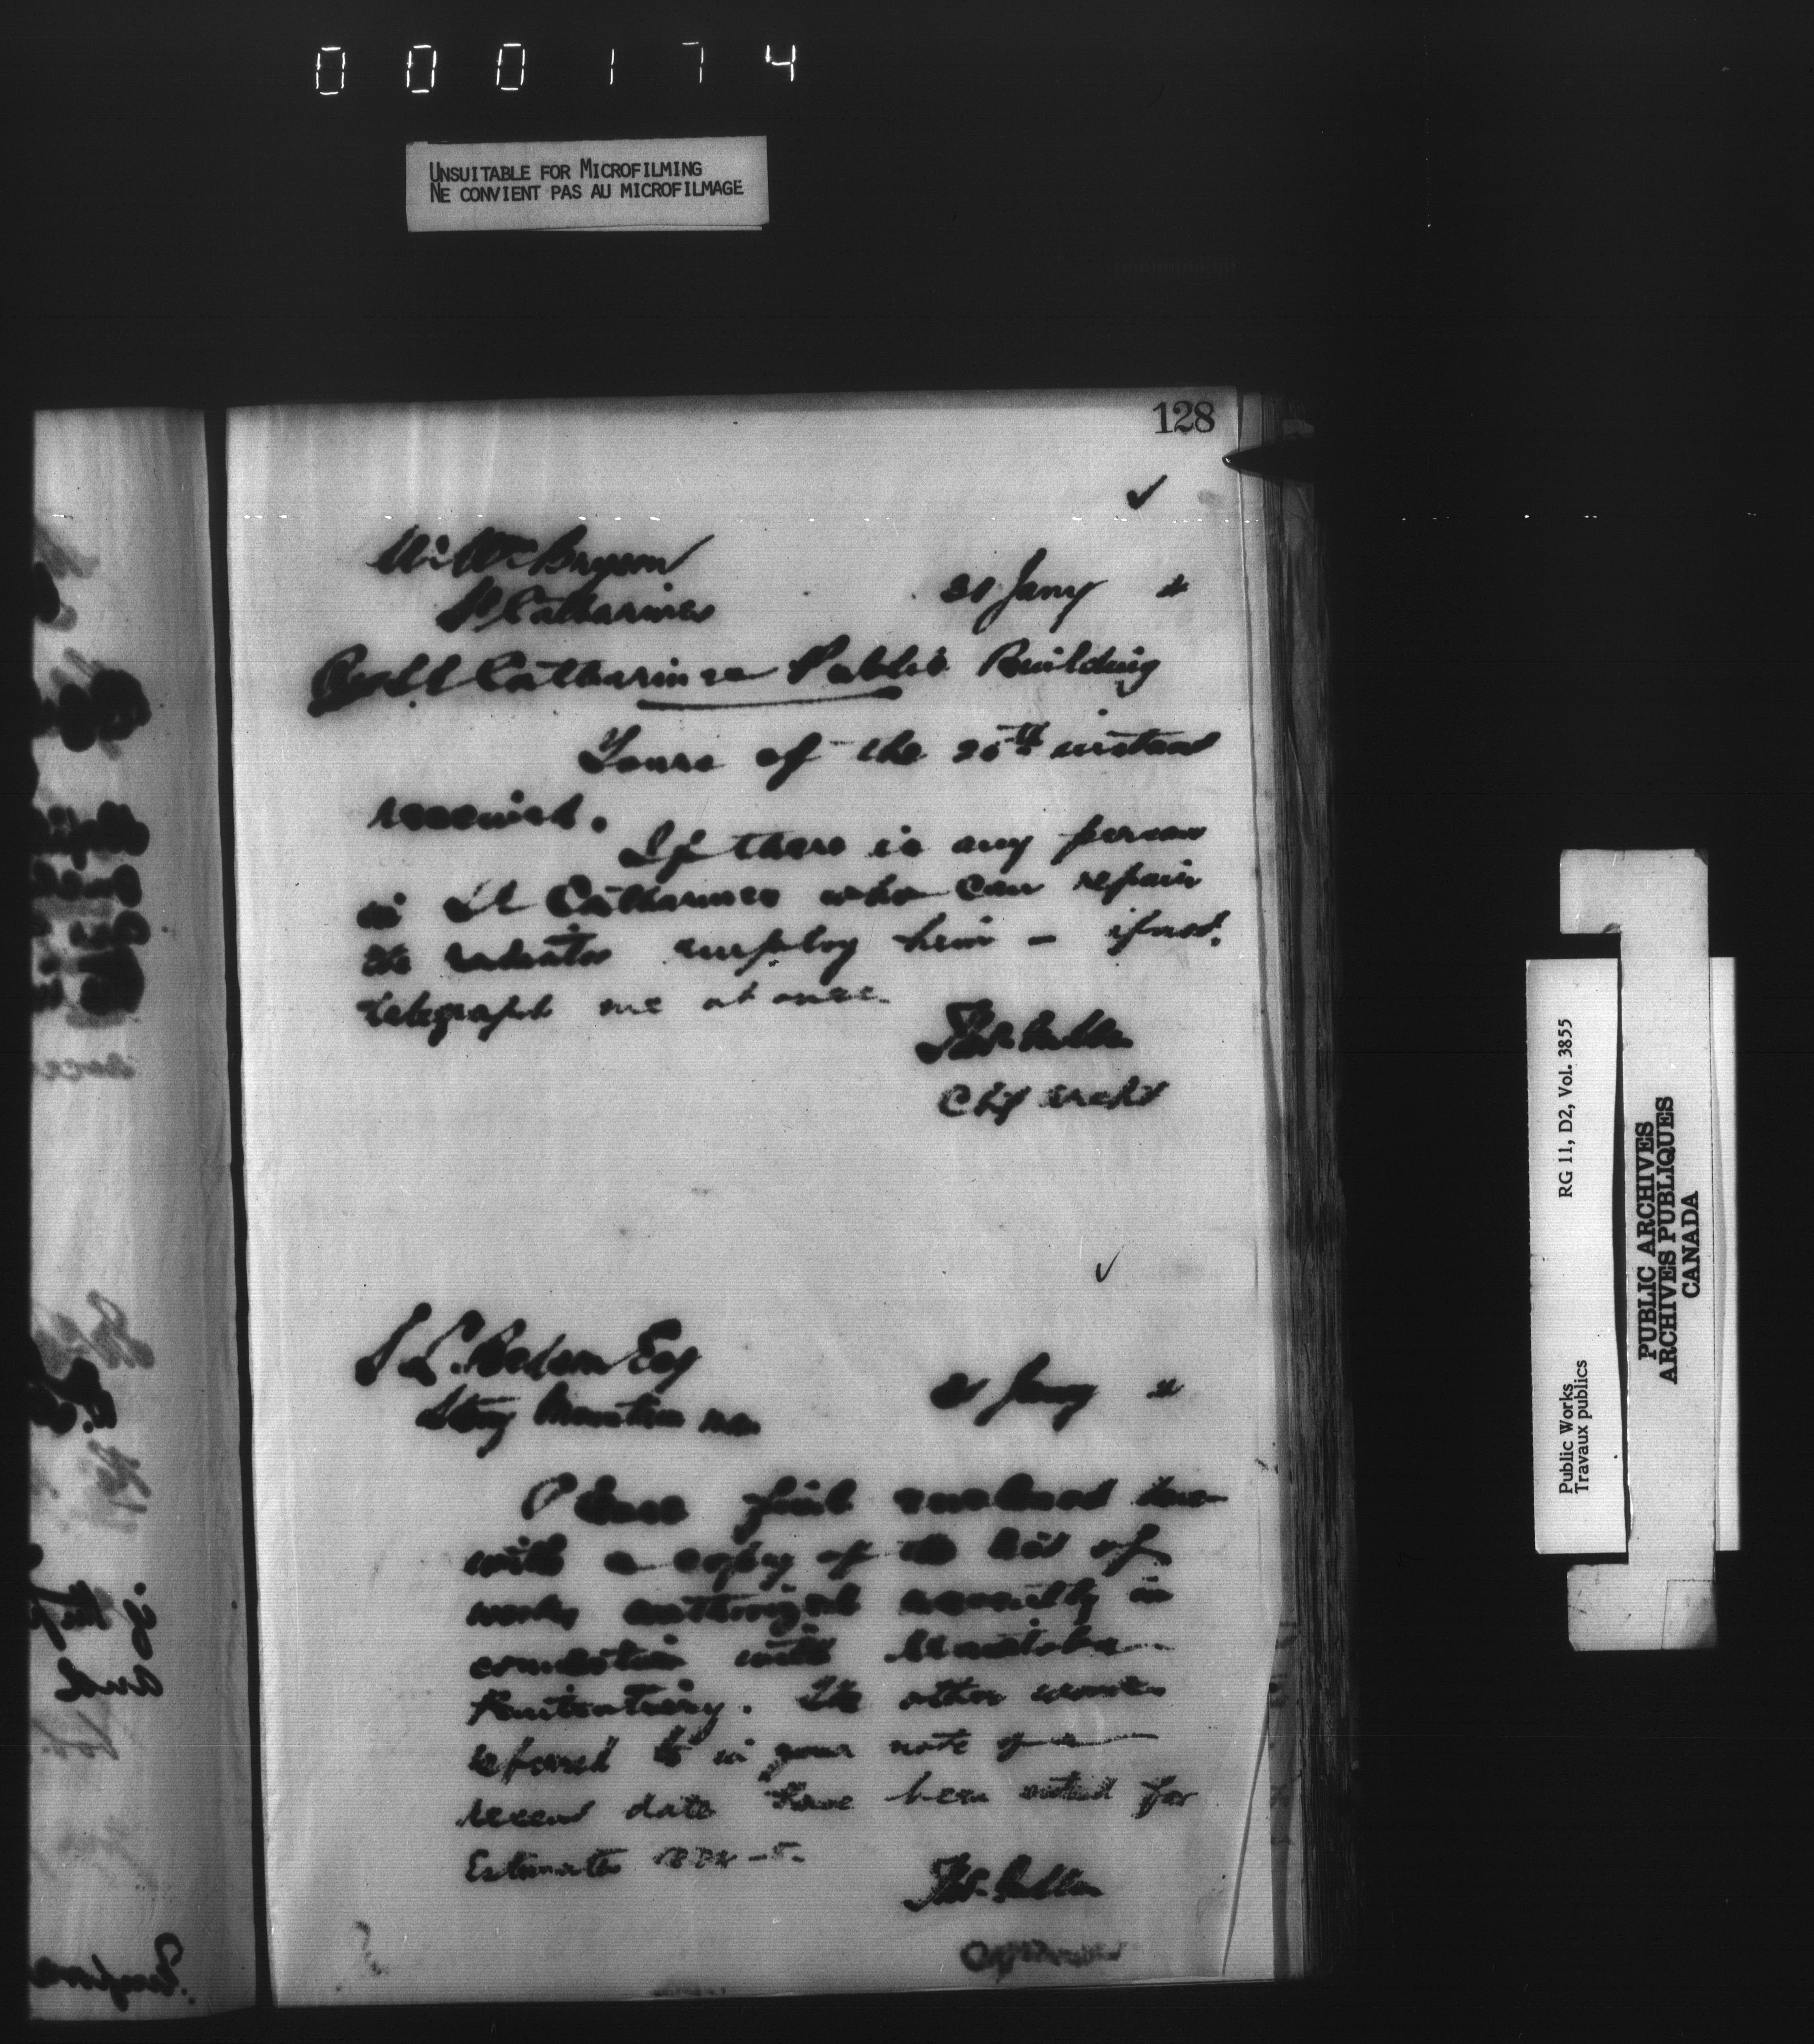 000174
UNSUITABLE FOR MICROFILMING
NE CONVIENT PAS AU MICROFILMAGE
128
✓
Bryson
St Catharines
31 Jany "
St Catharines Public Building
Yours of the 25th instant
received.
If there is any person
in St Catharines who can repair
the radiator employ him – if not.
telegraph me at once.
Thos. Fuller
Chf Archt
✓
S L. Bedson Esq
Stony Mountain Man
31 Jany "
Please find enclosed here
with a copy of the list of
works authorized recently in
connection with Manitoba
Penitentiary. The other works
referred to in your note of
recent date have been noted for
Estimates 1884–5.
Thos. Fuller
RG 11, D2, Vol. 3855
Public Works
Travaux publics
PUBLIC ARCHIVES
ARCHIVES PUBLIQUES
CANADA